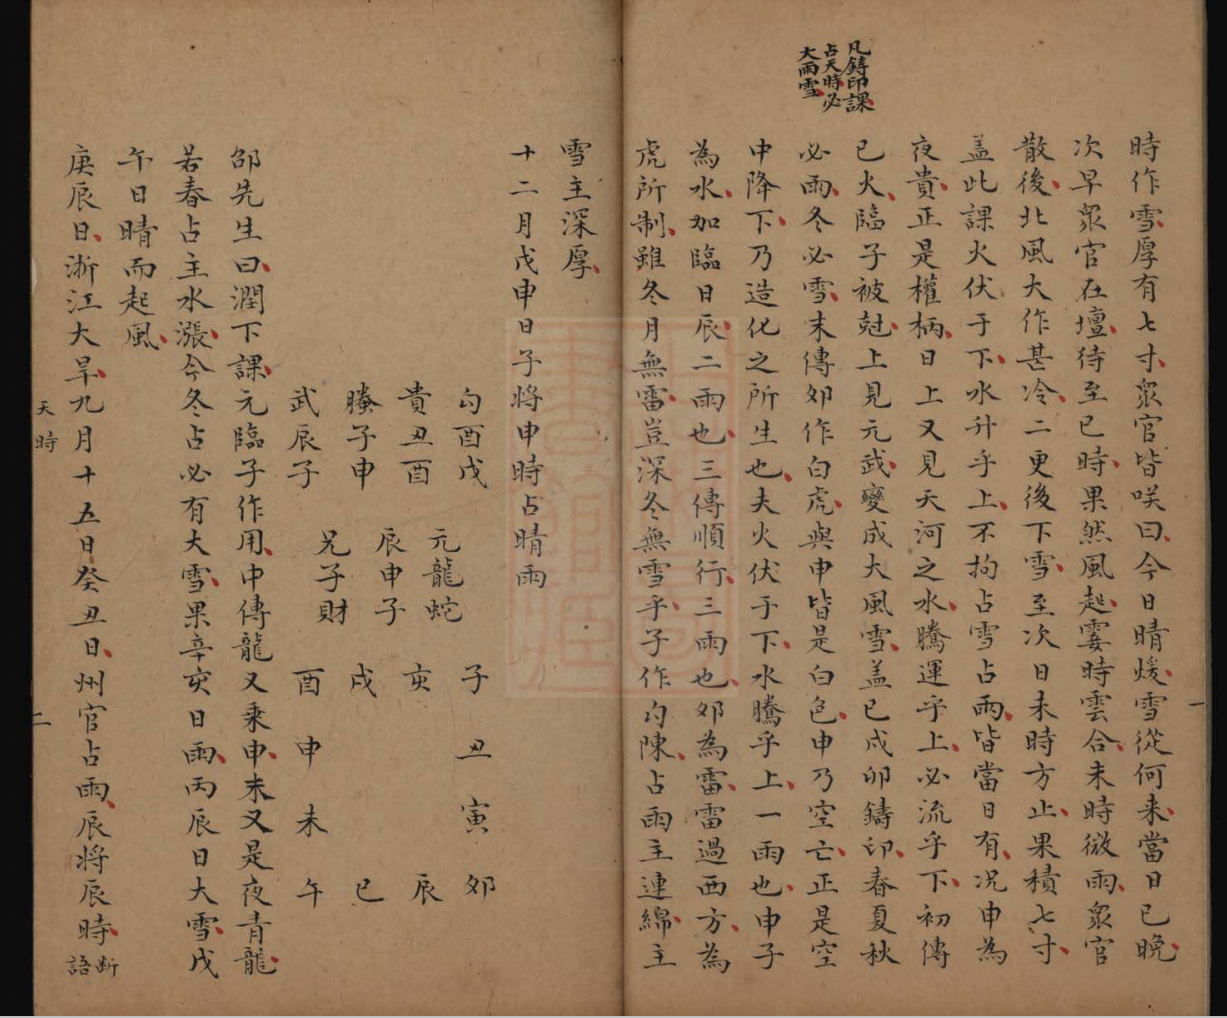 凡鑄印課
占天時必
大雨雪
時作雪厚有七寸衆官皆咲曰今日晴煖雪從何来當日已晚
次早衆官在壇待至巳時果然風起霎時雲合未時微雨衆官
散後北風大作甚冷二更後下雪至次日未時方止果積七寸
盖此課火伏于下水升乎上不拘占雪占雨皆當日有况申為
夜貴正是權柄日上又見天河之水騰運乎上必流乎下初傳
巳火臨子被尅上見元武變成大風雪盖巳戌卯鑄印春夏秋
必雨冬必雪末傳夘作白虎與申皆是白色申乃空亡正是空
中降下乃造化之所生也夫火伏于下水騰乎上一雨也申子
為水加臨日辰二雨也三傳順行三雨也夘為雷雷過西方為
虎所制雖冬月無雷豈深冬無雪乎子作勾陳占雨主連綿主
一
雪主深厚
十二月戊申日子將申時占晴雨
勾酉戊
貴丑酉
螣子申
武辰子
元龍蛇
辰申子
兄子財
子丑寅夘
亥辰
戌巳
酉申未午
邵先生曰潤下課元臨子作用中傳龍又乘申末又是夜青龍
若春占主水漲今冬占必有大雪果辛亥日雨丙辰日大雪戊
午日晴而起風
庚辰日浙江大旱九月十五日癸丑日州官占雨辰将辰時断語
天時
二